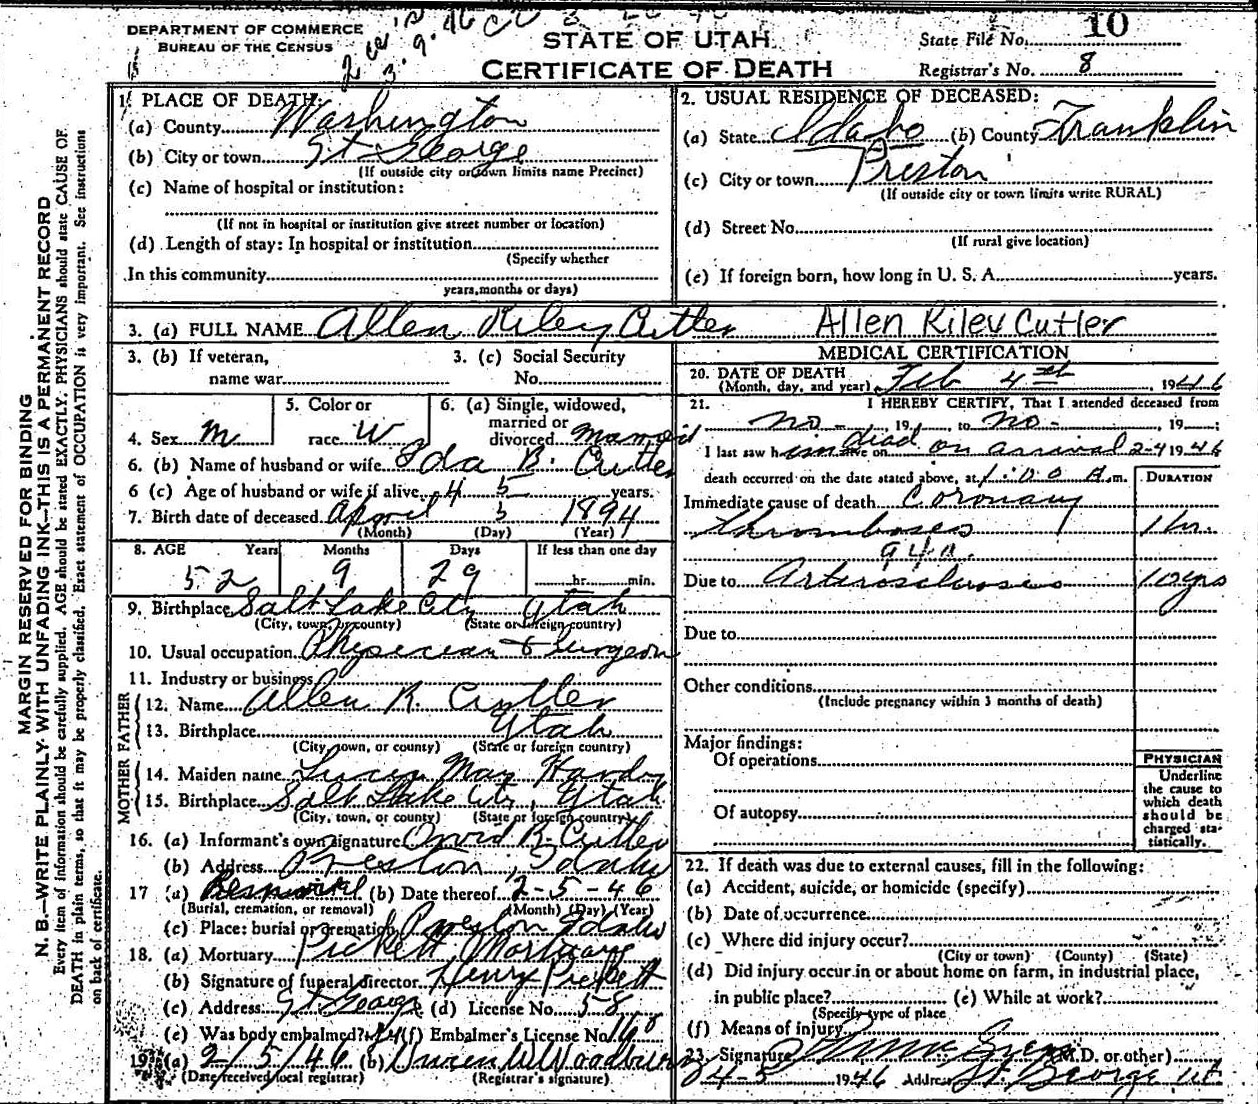 DEPARTMENT OF COMMERCE
BUREAU OF THE CENSUS
STATE OF UTAH
CERTIFICATE OF DEATH
State File No. 10
Registrar's No. 8
MARGIN RESERVED FOR BINDING
N. B.—WRITE PLAINLY WITH UNFADING INK—THIS IS A PERMANENT RECORD
Every item of information should be carefully supplied. AGE should be stated EXACTLY. PHYSICIANS should state CAUSE OF
DEATH in plain terms, so that it may be properly classified. Exact statement of OCCUPATION is very important. See instructions
on back of certificate.
1. PLACE OF DEATH:
(a) County Washington
(b) City or town St George
(If outside city or town limits name Precinct)
(c) Name of hospital or institution:
(If not in hospital or institution give street number or location)
(d) Length of stay: In hospital or institution
(Specify whether
In this community
years, months or days)
2. USUAL RESIDENCE OF DECEASED:
(a) State Idaho (b) County Franklin
(c) City or town Preston
(If outside city or town limits write RURAL)
(d) Street No.
(If rural give location)
(e) If foreign born, how long in U. S. A. years.
3. (a) FULL NAME Allen Riley Cutler Allen Riley Cutler
3. (b) If veteran,
name war
3. (c) Social Security
No.
4. Sex M
5. Color or
race W
6. (a) Single, widowed,
married or
divorced Married
6. (b) Name of husband or wife Ida B. Cutler
6 (c) Age of husband or wife if alive 45 years.
7. Birth date of deceased April 5 1894
(Month) (Day) (Year)
8. AGE Years Months Days If less than one day
52 9 29 hr. min.
9. Birthplace Salt Lake City Utah
(City, town, or county) (State or foreign country)
10. Usual occupation Physician & Surgeon
11. Industry or business
FATHER
12. Name Allen R. Cutler
13. Birthplace Utah
(City, town, or county) (State or foreign country)
MOTHER
14. Maiden name Lucy May Hardy
15. Birthplace Salt Lake City, Utah
(City, town, or county) (State or foreign country)
16. (a) Informant's own signature Orvid R. Cutler
(b) Address Preston, Idaho
17 (a) (b) Date thereof 2-5-46
(Burial, cremation, or removal) (Month) (Day) (Year)
(c) Place: burial or cremation Preston Idaho
18. (a) Mortuary Pickett Mortuary
(b) Signature of funeral director Henry Pickett
(c) Address St George (d) License No. 58
(e) Was body embalmed? (f) Embalmer's License No. 168
19. (a) 2/5/46 (b) Woodbury
(Date received local registrar) (Registrar's signature)
MEDICAL CERTIFICATION
20. DATE OF DEATH
(Month, day, and year) Feb 4th, 1946
21. I HEREBY CERTIFY, That I attended deceased from
no - , 19 , to no - , 19 ;
I last saw him dead alive on on arrival 2-4 1946
death occurred on the date stated above, at 1:00 A.m.
DURATION
Immediate cause of death Coronary
thrombosis 1 hr.
94a.
Due to Arteriosclerosis 10 yrs
Due to
Other conditions
(Include pregnancy within 3 months of death)
Major findings:
Of operations
Of autopsy
PHYSICIAN
Underline
the cause to
which death
should be
charged sta-
tistically.
22. If death was due to external causes, fill in the following:
(a) Accident, suicide, or homicide (specify)
(b) Date of occurrence
(c) Where did injury occur?
(City or town) (County) (State)
(d) Did injury occur in or about home on farm, in industrial place,
in public place? (e) While at work?
(Specify type of place
(f) Means of injury
23. Signature (M.D. or other)
1946 Address St. George Ut.